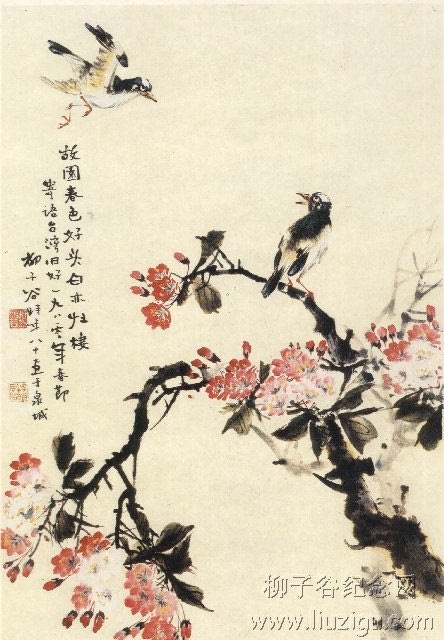 故園春色好头白亦归棲
寄语台湾旧好一九八〇年春节
柳子谷时年八十画于泉城
柳子谷纪念网
www.liuzigu.com